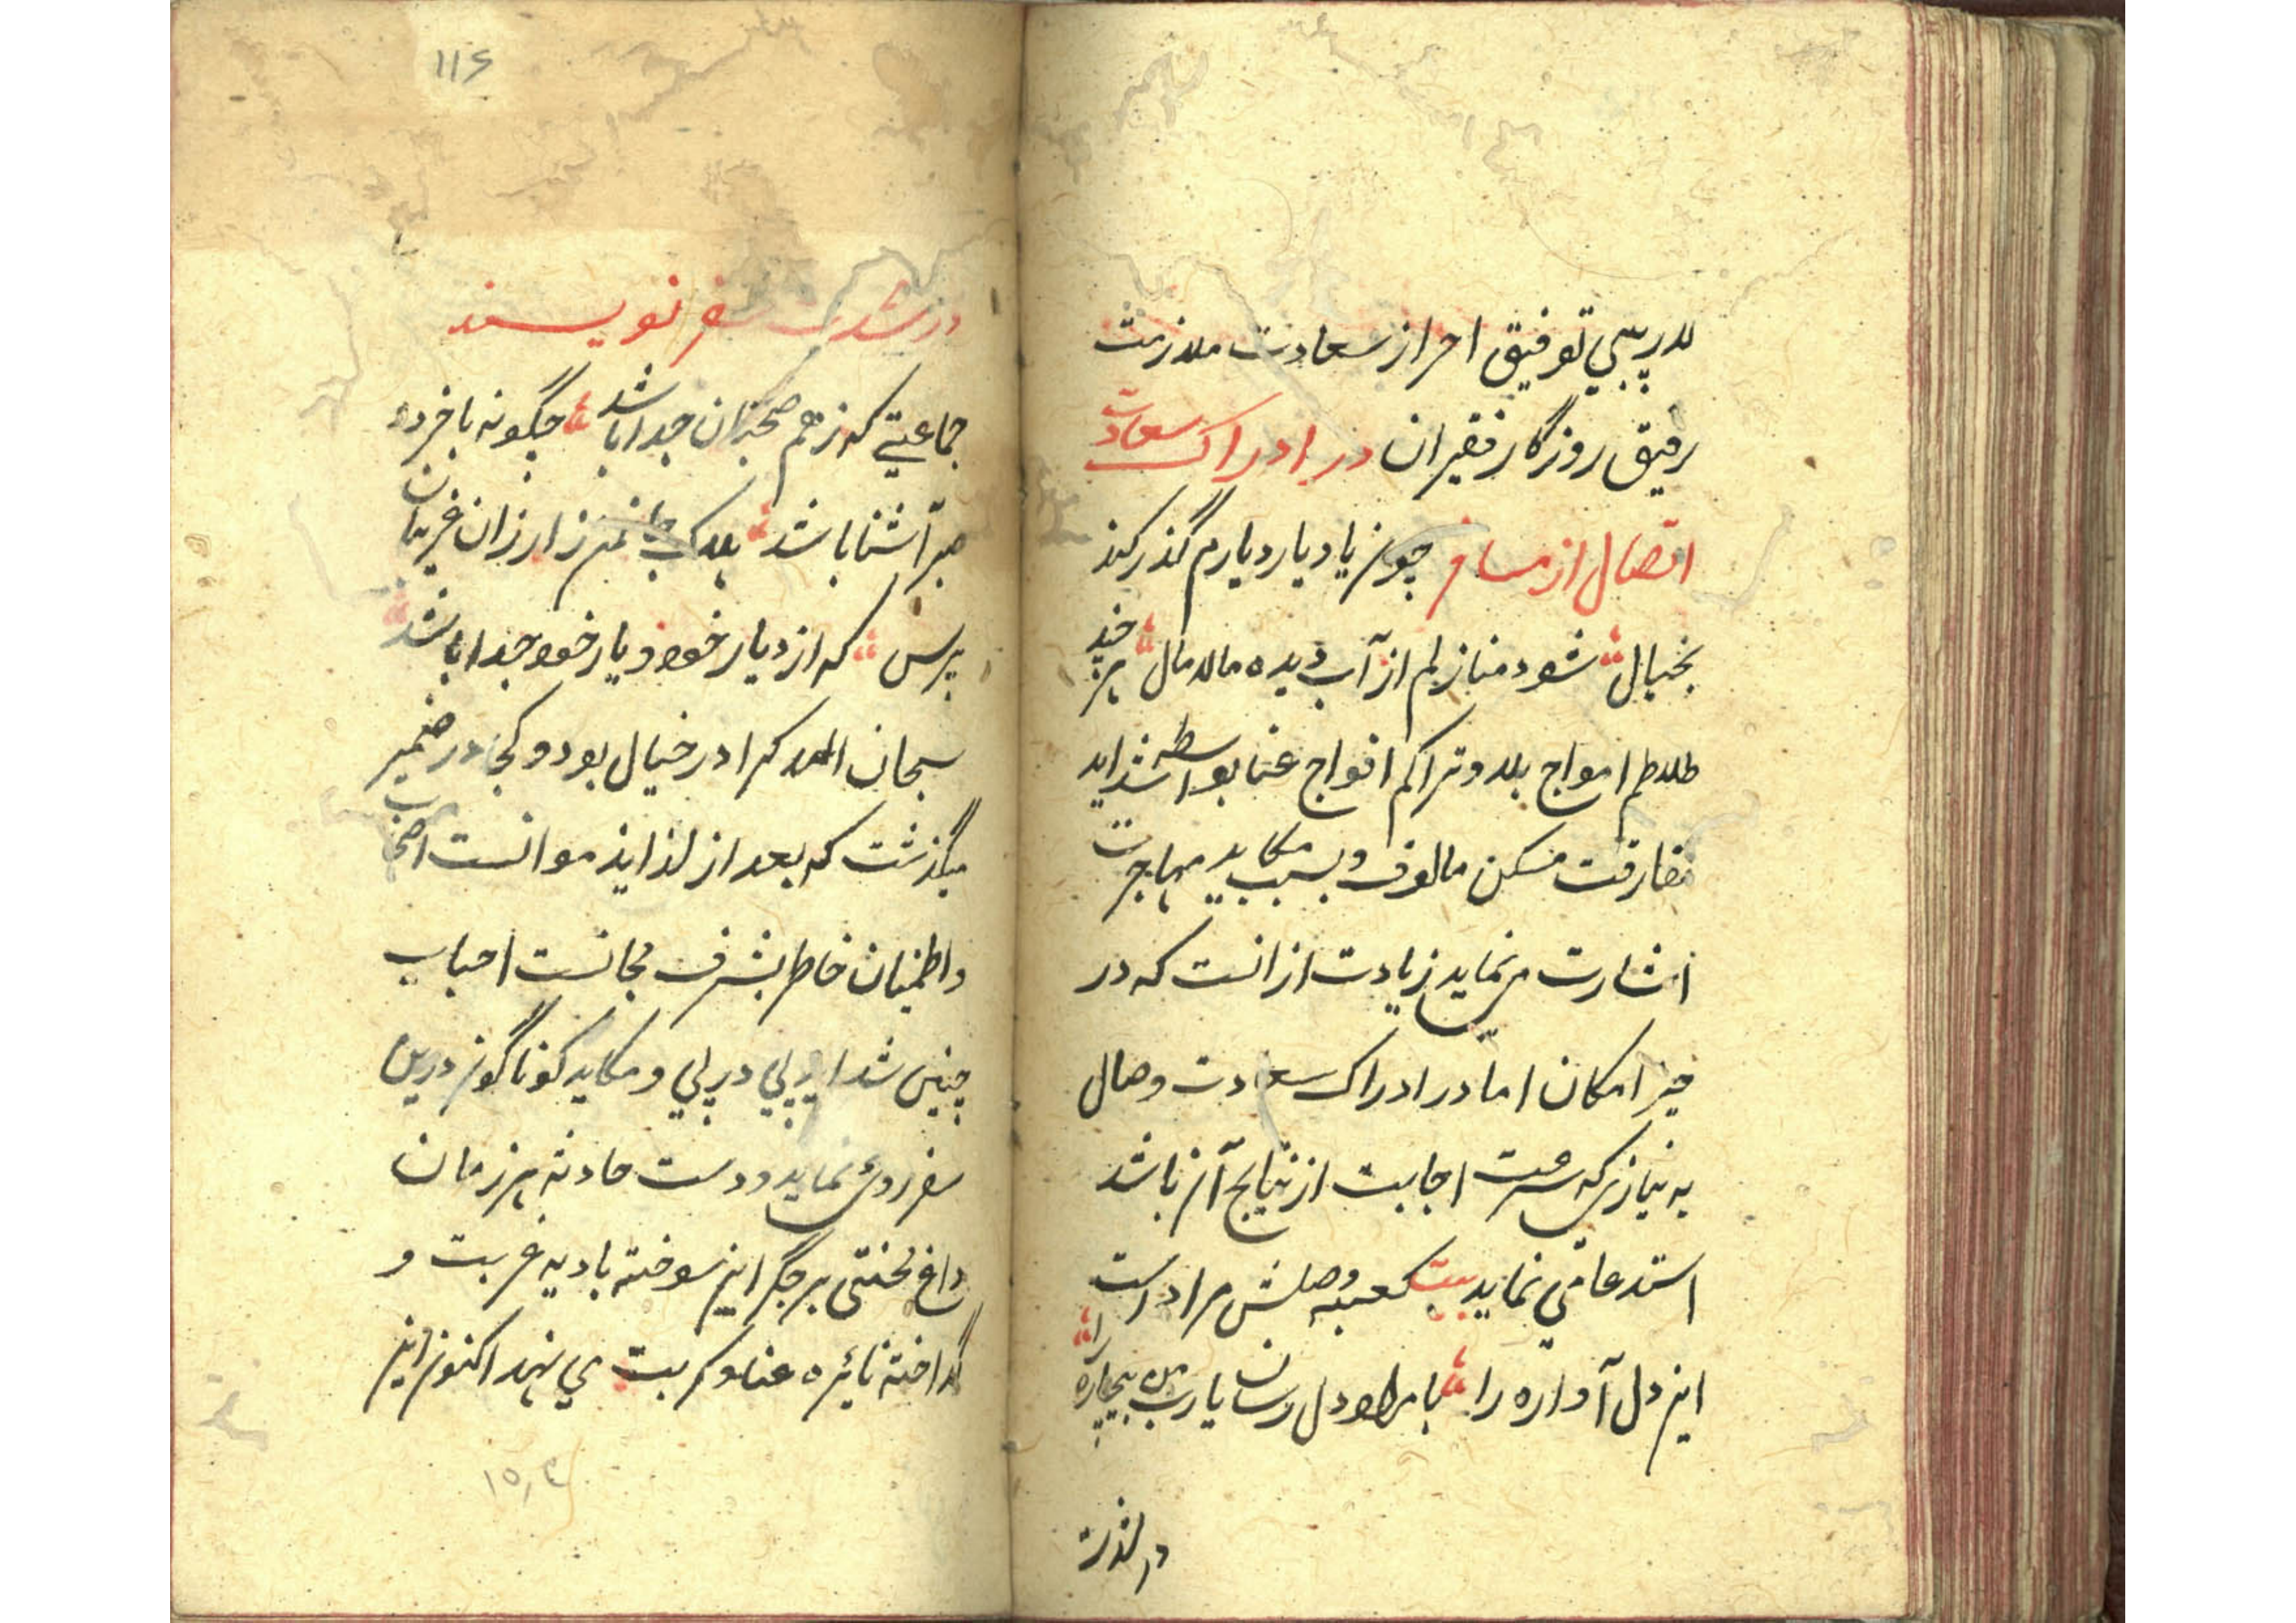 لاریبی توفیق احراز سعادت ملازمت
رفیق روزگار فقیران در ادراک سعادت
اتصال از مسافر چون یاد یار و دیارم گذر کند
بخیال شود منازلم از آب دیده مالامال هرچند
طلاطم امواج بلا و تراکم افواج عنا بواسطه شداید
مفارقت مسکن مالوف و بسبب مکاید مهاجرت
اشارت می نماید زیادت از انست که در
حیز امکان اما در ادراک سعادت وصال
به نیازی که سرعت اجابت از نتایج آن باشد
استدعا می نماید بیت کعبه وصلش مراد است
این دل آواره را با مراد دل رسان یارب من بیچاره را
در لذت
۱۱۶
در شدت سفر نویسند
جماعتی که زهم صحبتان جدا باشد چگونه با خرد و
صبر آشنا باشد بلا کش زارزان غریبان
بپرس که از دیار خود و یار خود جدا باشد
سبحان الله کرا در خیال بود و کجا در ضمیر
میگذشت که بعد از لذاید موانست اصحاب
و اطمینان خاطر بشرف مجانست احباب
چنین شداید پی در پی و مکاید کوناگون درین
سفر روی نماید و دست حادثه هر زمان
داغ محنتی بر جگر این سوخته بادیه غربت و
گداخته نائره عنا و کربت می نهد اکنون این